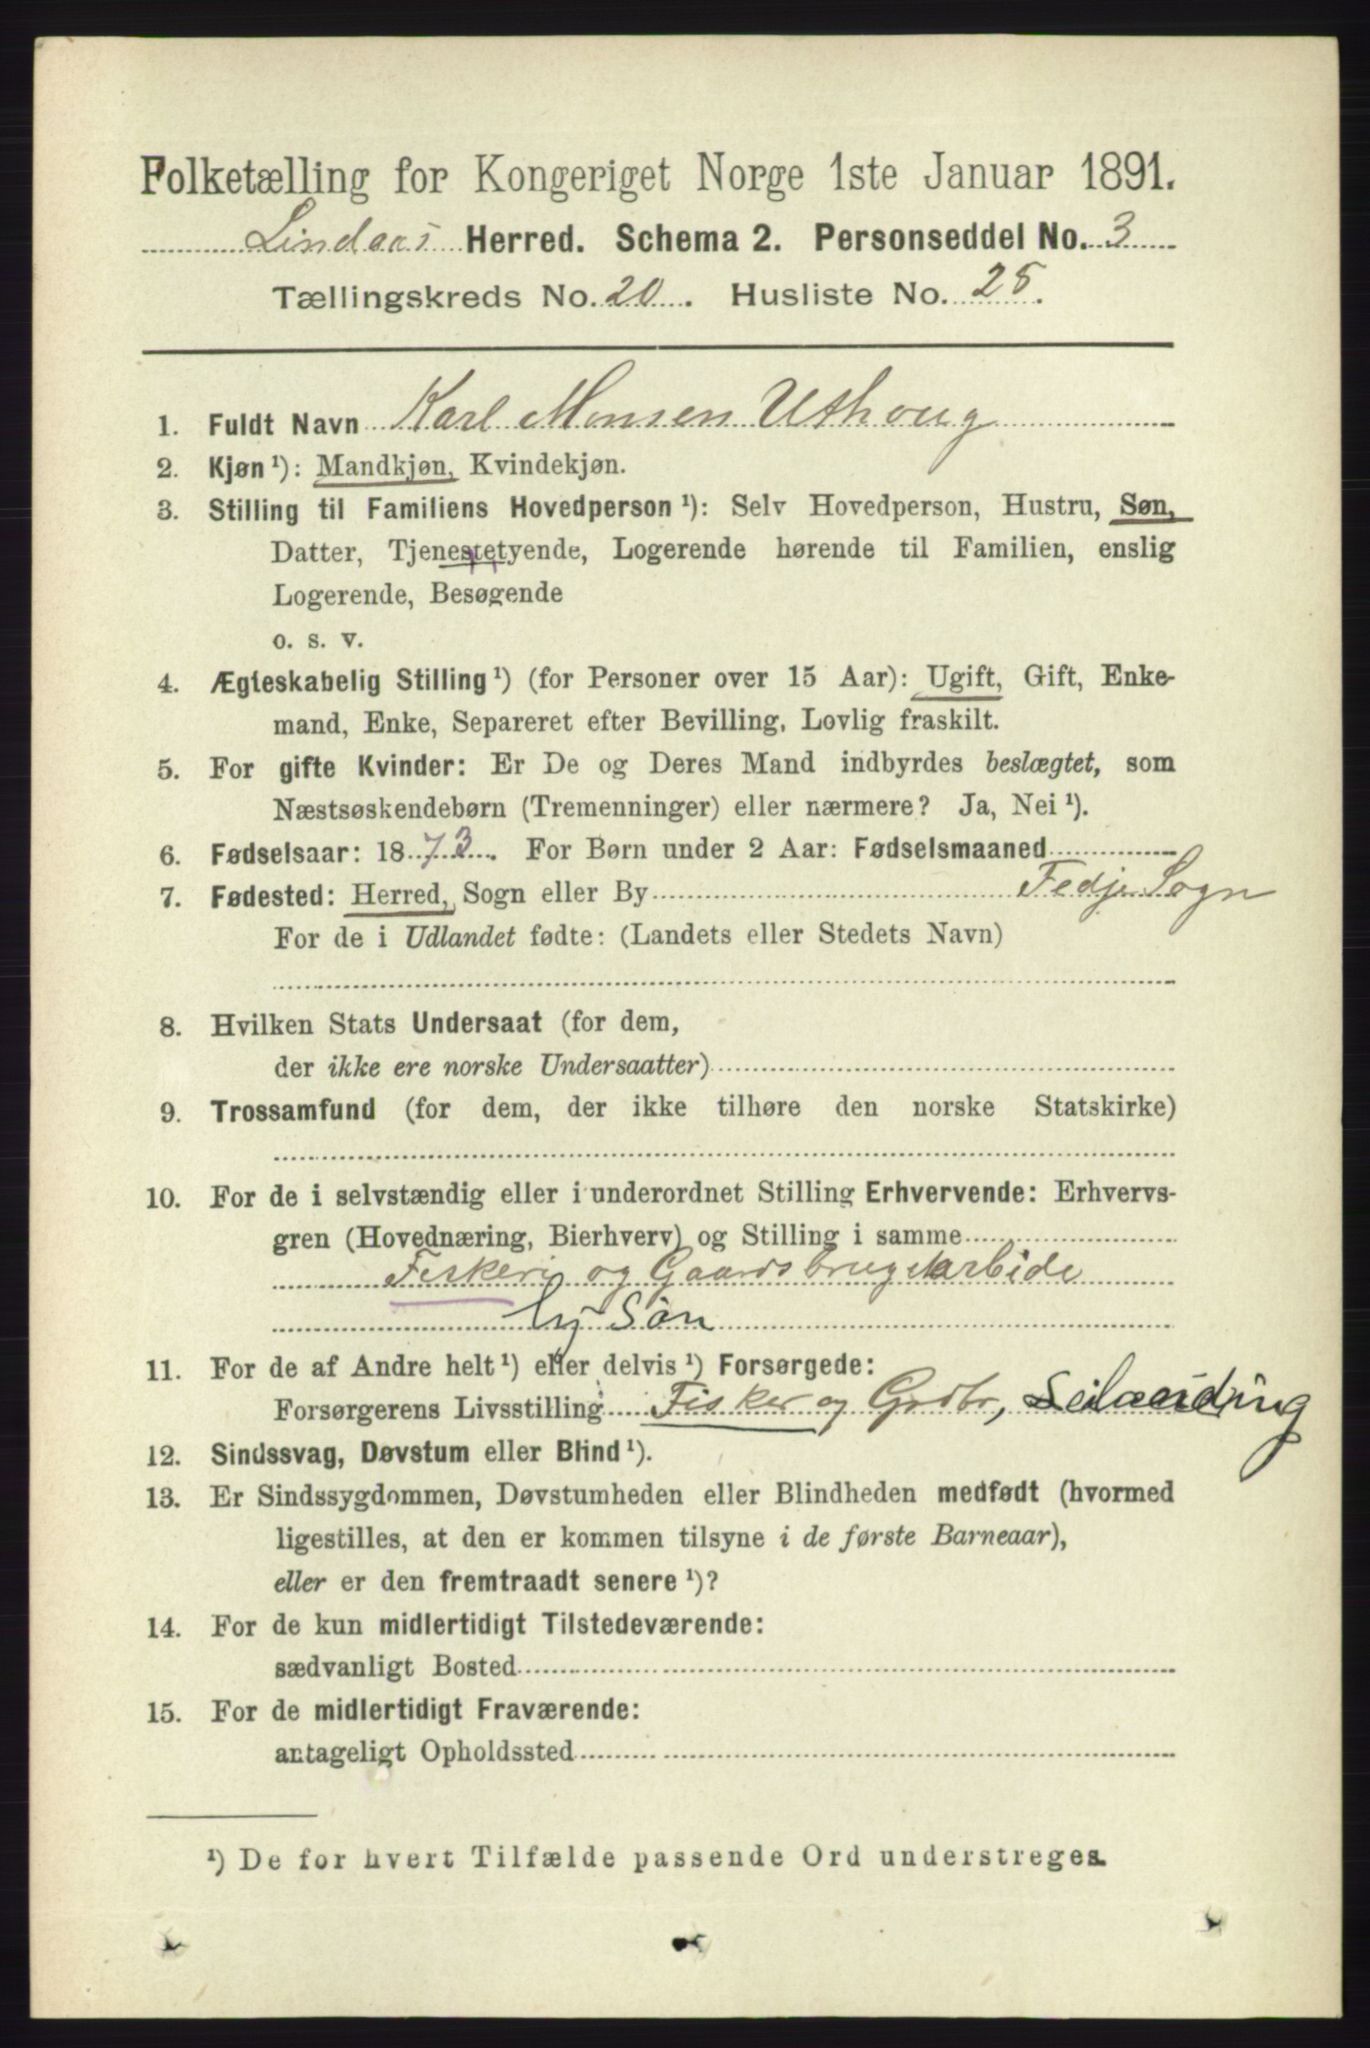 Folketælling for Kongeriget Norge 1ste Januar 1891.
Lindaas Herred. Schema 2. Personseddel No. 3
Tællingskreds No. 20. Husliste No. 25.
1. Fuldt Navn Karl Monsen Uthoug
2. Kjøn ¹): Mandkjøn, Kvindekjøn.
3. Stilling til Familiens Hovedperson ¹): Selv Hovedperson, Hustru, Søn,
Datter, Tjenestetyende, Logerende hørende til Familien, enslig
Logerende, Besøgende
o. s. v.
4. Ægteskabelig Stilling ¹) (for Personer over 15 Aar): Ugift, Gift, Enke-
mand, Enke, Separeret efter Bevilling, Lovlig fraskilt.
5. For gifte Kvinder: Er De og Deres Mand indbyrdes beslægtet, som
Næstsøskendebørn (Tremenninger) eller nærmere? Ja, Nei ¹).
6. Fødselsaar: 1873. For Børn under 2 Aar: Fødselsmaaned
7. Fødested: Herred, Sogn eller By Fedje Sogn
For de i Udlandet fødte: (Landets eller Stedets Navn)
8. Hvilken Stats Undersaat (for dem,
der ikke ere norske Undersaatter)
9. Trossamfund (for dem, der ikke tilhøre den norske Statskirke)
10. For de i selvstændig eller i underordnet Stilling Erhvervende: Erhvervs-
gren (Hovednæring, Bierhverv) og Stilling i samme
Fiskeri og Gaardsbrugsarbide
hj Søn
11. For de af Andre helt ¹) eller delvis ¹) Forsørgede:
Forsørgerens Livsstilling Fisker og Grdbr, Leilænding
12. Sindssvag, Døvstum eller Blind ¹).
13. Er Sindssygdommen, Døvstumheden eller Blindheden medfødt (hvormed
ligestilles, at den er kommen tilsyne i de første Barneaar),
eller er den fremtraadt senere ¹)?
14. For de kun midlertidigt Tilstedeværende:
sædvanligt Bosted
15. For de midlertidigt Fraværende:
antageligt Opholdssted
¹) De for hvert Tilfælde passende Ord understreges.